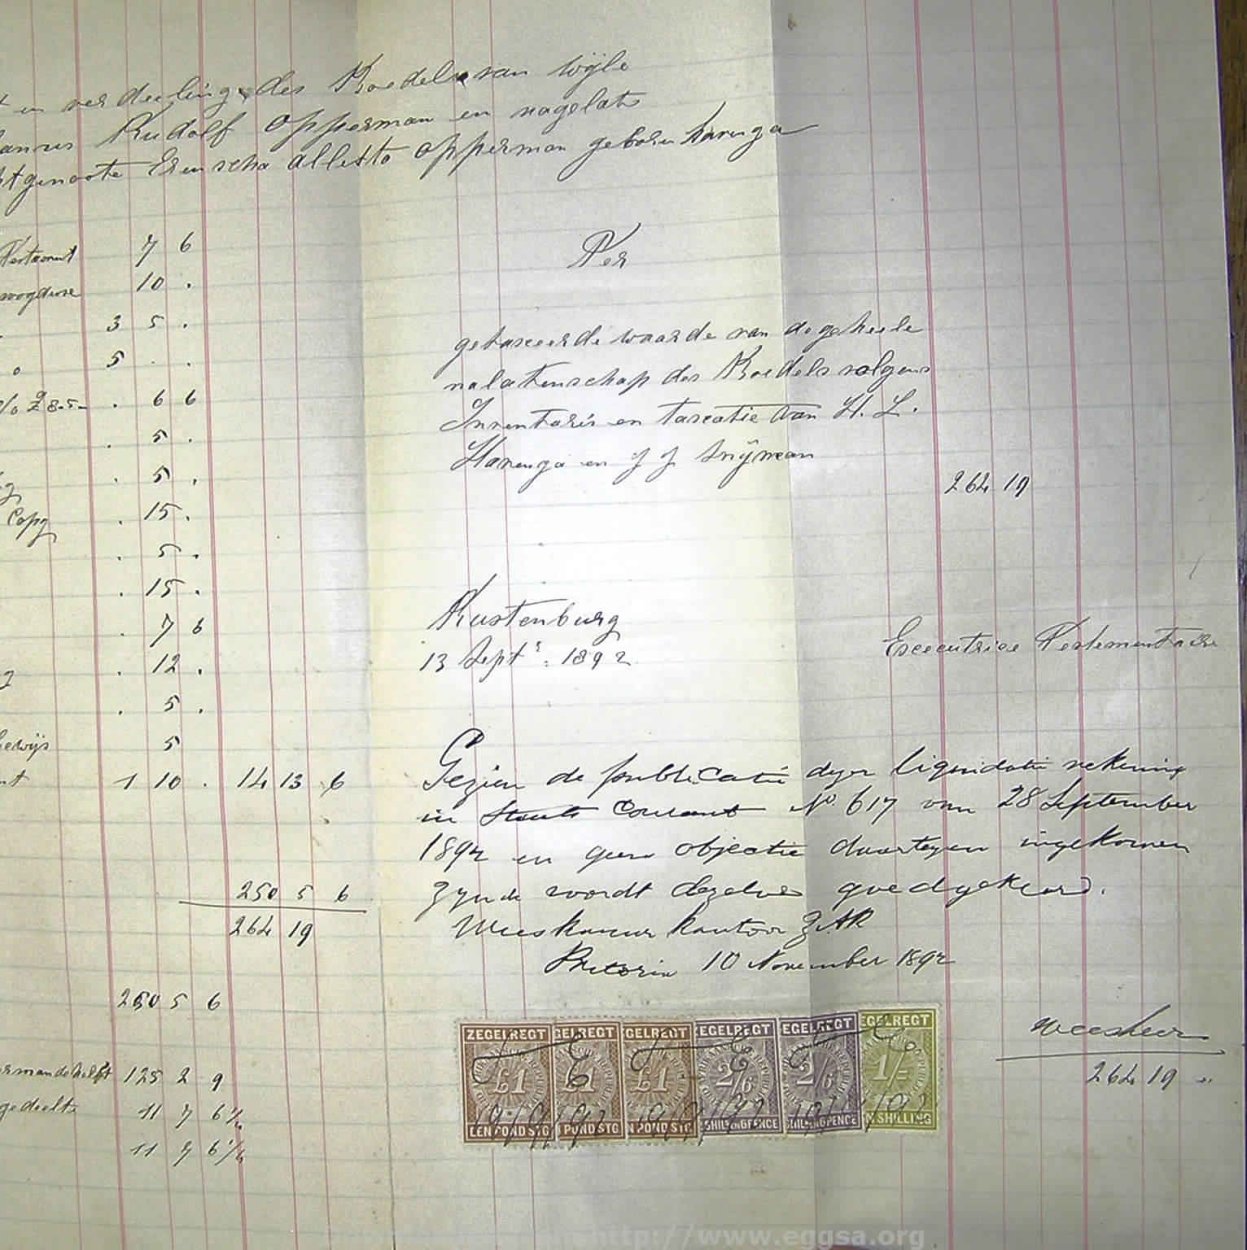 en verdeeling des Boedels van wijle
Rudolf Opperman en nagelate
Aletta Opperman geboren Haringa
7 6
10 .
3 5 .
5 . .
. 6 6
. 5 .
. 5 .
Copy . 15 .
. 5 .
. 15 .
. 7 6
. 12 .
. 5 .
5
1 10 . 14 13 6
250 5 6
264 19
250 5 6
125 2 9
11 7 6½
11 7 6¼
Per
getaxeerde waarde van de geheele
nalatenschap des Boedels volgens
Inventaris en taxatie van H. L.
Haringa en J J Snÿman
264 19
Rustenburg
13 Septr. 1892
Executrice Testamentaire
Gezien de publicatie dezer liquidatie rekening
in Staats Courant No 617 van 28 September
1892 en geen objectie daartegen ingekomen
zynde wordt dezelve goedgekeurd.
Weeskamer Kantoor ZAR
Pretoria 10 November 1892
Weesheer
264 19
ZEGELREGT ZEGELREGT ZEGELREGT ZEGELREGT ZEGELREGT ZEGELREGT
£1 £1 £1 2/6 2/6 1/-
EEN POND STG POND STG N POND STG SHILLING PENCE SHILLINGPENCE N SHILLING
http://www.eggsa.org